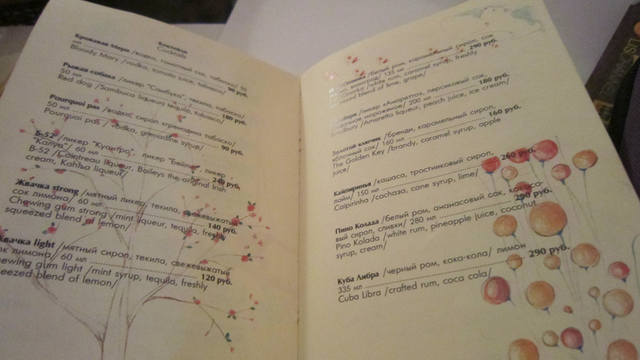 Коктейли
Cocktails
Кровавая Мери /водка, томатный сок, табаско/ 50
мл
90 руб.
Bloody Mary /vodka, tomato juice, tabasco/
Рыжая собака /ликер "Самбука", текила, табаско/
50 мл
180 руб.
Red dog / Sambuca liqueur, tequila, tabasco/
Pourquoi pas /водка, сироп
50 мл
90 руб.
Pourquoi pas / vodka, grenadine syrup/
Б-52 / ликер "Куантро", ликер "Бейлис", ликер
"Калуа"/ 60 мл
240 руб.
B-52 / Cointreau liqueur, Baileys the original Irish
cream, Kahlua liqueur/
Жвачка strong /мятный ликер, текила, свежевыжатый
сок лимона/ 60 мл
140 руб.
Chewing gum strong /mint liqueur, tequila, freshly
squeezed blend of lemon/
Жвачка light /мятный сироп, текила, свежевыжатый
сок лимона/ 60 мл
120 руб.
Chewing gum light /mint syrup, tequila, freshly
squeezed blend of lemon/
/белый ром, карамельный сироп,
135 мл
290 руб.
/white rum, caramel syrup, freshly
blend of lime, grape/
/ликер «Амаретто», персиковый сок,
мороженое/ 200 мл
180 руб.
/Amaretto liqueur, peach juice, ice cream/
Золотой ключик /бренди, карамельный сироп,
яблочный сок/ 160 мл
160 руб.
The Golden Key /brandy, caramel syrup, apple
juice/
Кайпиринья /кашаса, тростниковый сироп,
лайм/ 150 мл
260 руб.
Caipirinha /cachaca, cane syrup, lime/
Пина Колада /белый ром, ананасовый сок, кокосо-
вый сироп, сливки/ 280 мл
290 руб.
Pino Kolada /white rum, pineapple juice, coconut
syrup, cream/
Куба Либра /черный ром, кока-кола/ лимон
335 мл
290 руб.
Cuba Libra /crafted rum, coca cala/